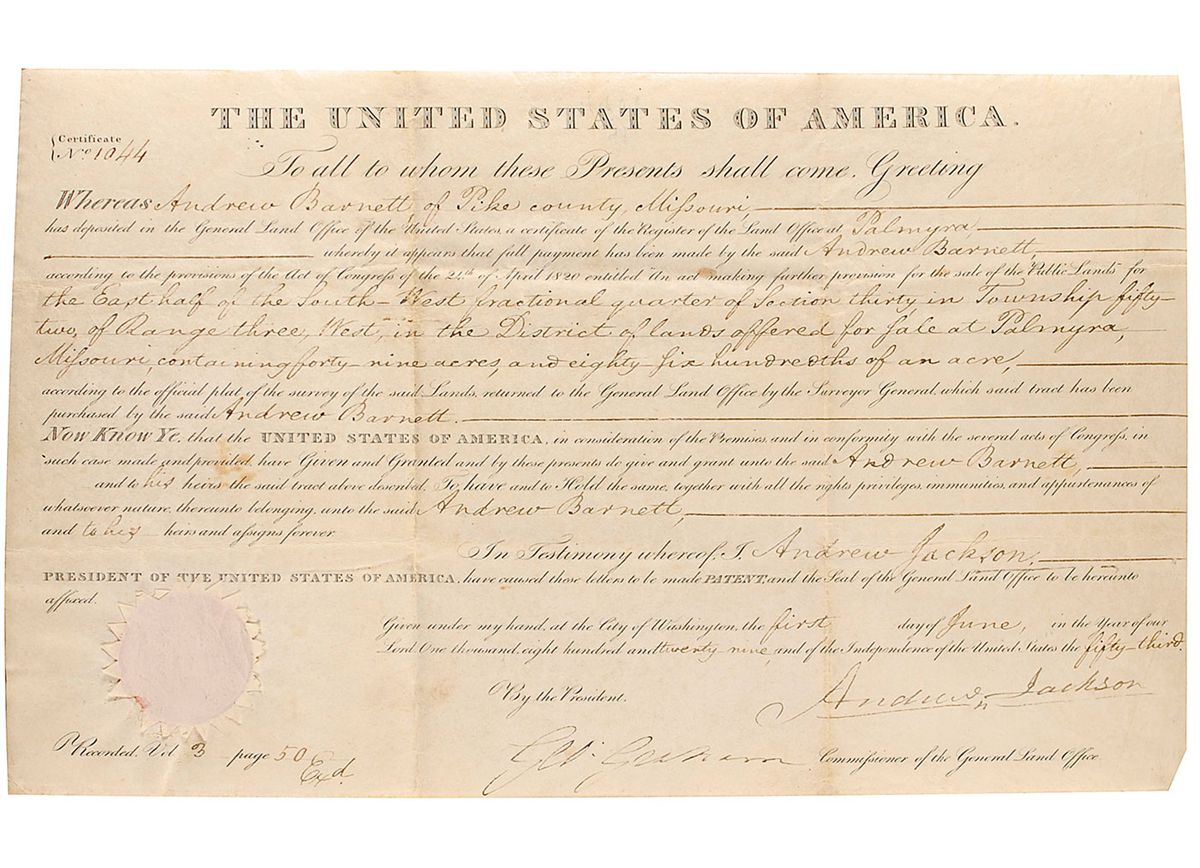 THE UNITED STATES OF AMERICA.
Certificate
No. 1044
To all to whom these Presents shall come, Greeting
Whereas Andrew Barnett, of Pike county, Missouri,
has deposited in the General Land Office of the United States, a certificate of the Register of the Land Office at Palmyra
whereby it appears that full payment has been made by the said Andrew Barnett,
according to the provisions of the Act of Congress of the 24th of April 1820 entitled "An act making further provision for the sale of the Public Lands" for
the East half of the South-West fractional quarter of Section thirty, in Township fifty-
two, of Range three, West, in the District of lands offered for sale at Palmyra,
Missouri, containing forty-nine acres, and eighty-six hundredths of an acre,
according to the official plat of the survey of the said Lands, returned to the General Land Office by the Surveyor General, which said tract has been
purchased by the said Andrew Barnett.
Now Know Ye, that the UNITED STATES OF AMERICA, in consideration of the Premises, and in conformity with the several acts of Congress, in
such case made and provided, have Given and Granted and by these presents do give and grant unto the said Andrew Barnett,
and to his heirs the said tract above described, To have and to Hold the same, together with all the rights privileges, immunities, and appurtenances of
whatsoever nature, thereunto belonging, unto the said Andrew Barnett,
and to his heirs and assigns forever.
In Testimony whereof, I, Andrew Jackson,
PRESIDENT OF THE UNITED STATES OF AMERICA, have caused these letters to be made PATENT, and the Seal of the General Land Office to be hereunto
affixed.
Given under my hand, at the City of Washington, the first day of June, in the Year of our
Lord One thousand, eight hundred and twenty-nine, and of the Independence of the United States the fifty-third.
By the President.
Andrew Jackson
Recorded, Vol 3 page 50
Exd.
Geo: Graham Commissioner of the General Land Office